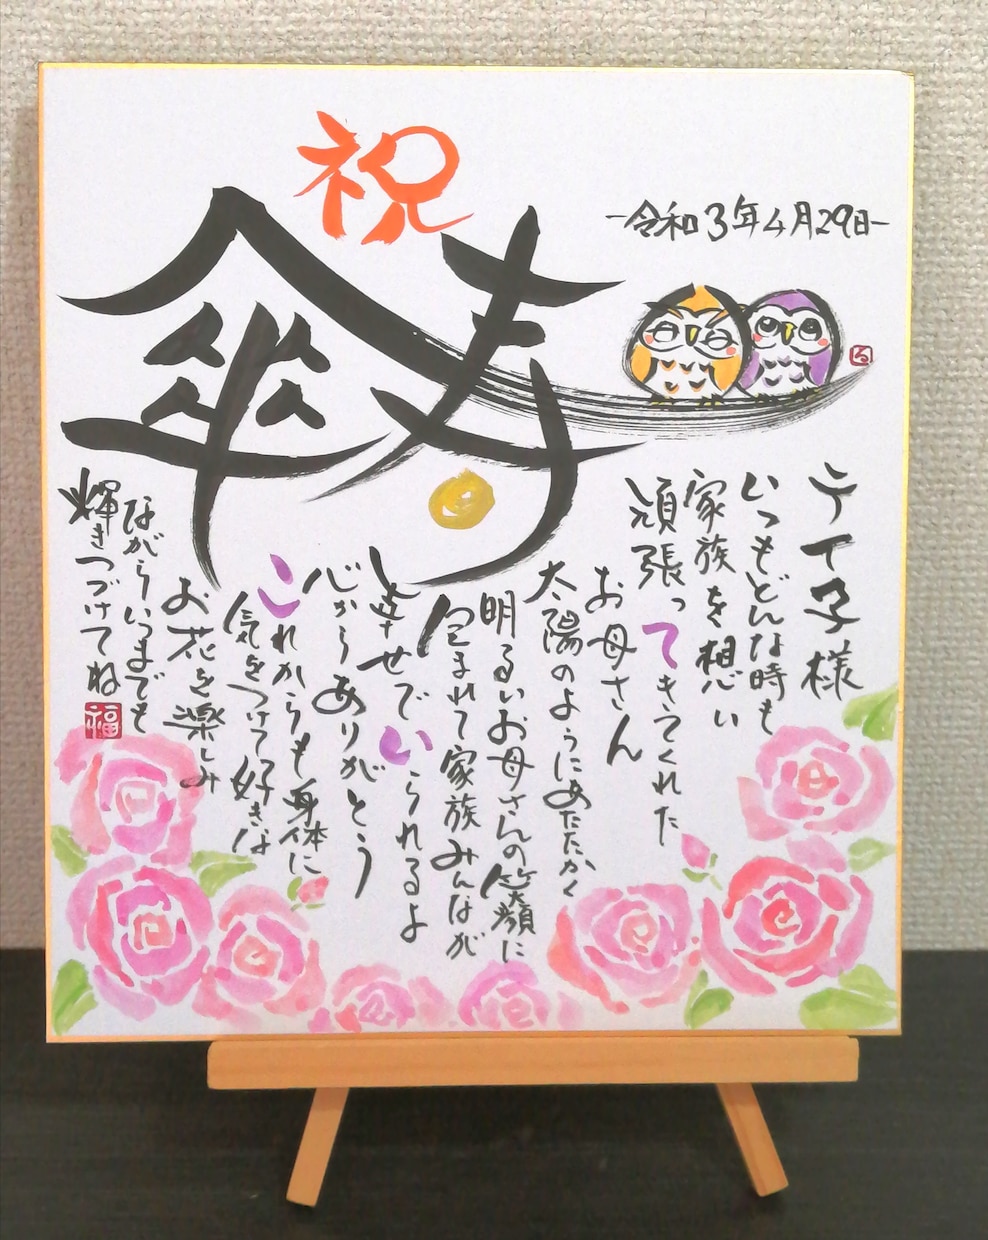 祝
傘寿
-令和3年4月29日-
テイ子様
いつもどんな時も
家族を想い
頑張ってきてくれた
お母さん
太陽のようにあたたかく
明るいお母さんの笑顔に
包まれて家族みんなが
幸せでいられるよ
心からありがとう
これからも身体に
気をつけて好きな
お花を楽しみ
ながらいつまでも
輝きつづけてね
福
る